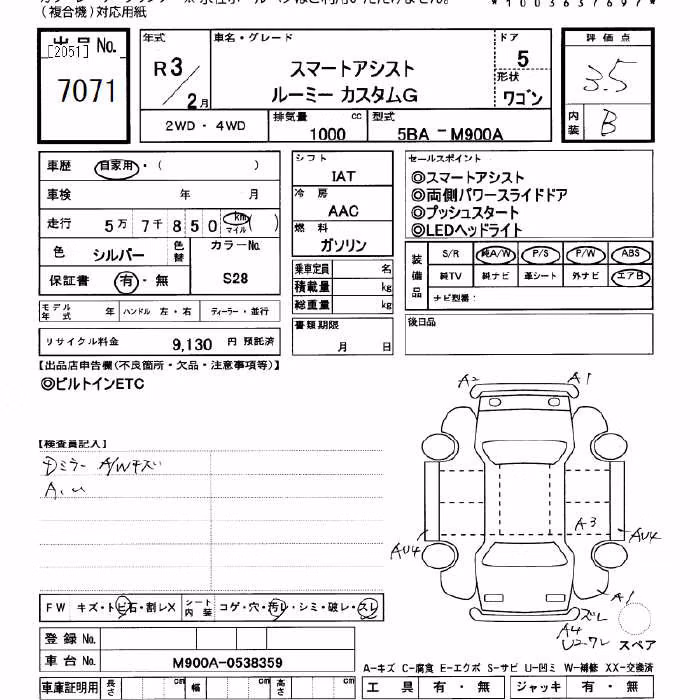 (複合機)対応用紙
*1003637697*
出品 No.
[2051]
7071
年式
R3/2月
車名・グレード
スマートアシスト
ルーミー カスタムG
ドア
5
形状
ワゴン
2WD・4WD
排気量
1000 cc
型式
5BA - M900A
評価点
3.5
内装
B
車歴 自家用・( )
車検 年 月
走行 5万 7千 8 5 0 km マイル ( )
色 シルバー 色替
カラーNo.
S28
保証書 有・無
モデル年式 年 ハンドル 左・右 ディーラー・並行
リサイクル料金 9,130 円 預託済
シフト
IAT
冷房
AAC
燃料
ガソリン
乗車定員 名
積載量 kg
総重量 kg
書類期限
月 日
セールスポイント
◎スマートアシスト
◎両側パワースライドドア
◎プッシュスタート
◎LEDヘッドライト
装備品
S/R 純A/W P/S P/W ABS
純TV 純ナビ 革シート 外ナビ エアB
ナビ型番:
後日品
【出品店申告欄(不良箇所・欠品・注意事項等)】
◎ビルトインETC
【検査員記入】
ミラー A/Wキズ
A2 A1
A3
AU4 AU4
A1
ズレ
A4
スペア
FW キズ・トビ石・割レX シート内装 コゲ・穴・汚レ・シミ・破レ・スレ
登録 No.
車台 No. M900A-0538359
車庫証明用 長さ cm 幅 cm 高さ cm
A-キズ C-腐食 E-エクボ S-サビ U-凹ミ W-補修 XX-交換済
工具 有・無 ジャッキ 有・無